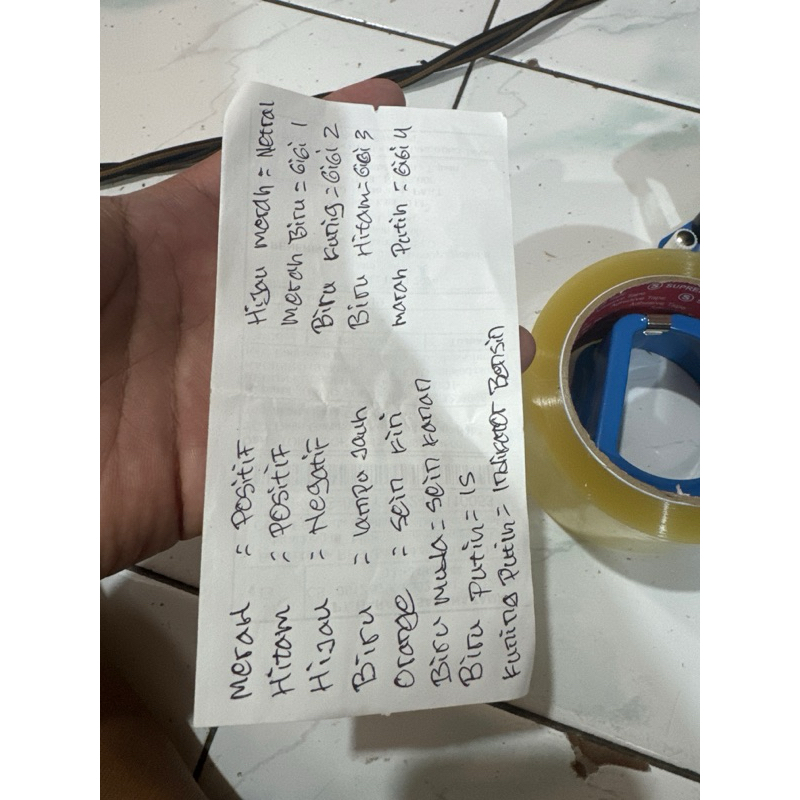 Merah = Positif
Hitam = Positif
Hijau = Negatif
Biru = lampu Jauh
Orange = Sein Kiri
Biru Muda = Sein Kanan
Biru Putih = 1s
Kuning Putih = Indikator Bensin
Hijau Merah = Netral
Merah Biru = Gigi 1
Biru Kunig = Gigi 2
Biru Hitam = Gigi 3
Marah Putih = Gigi 4
SUPRE